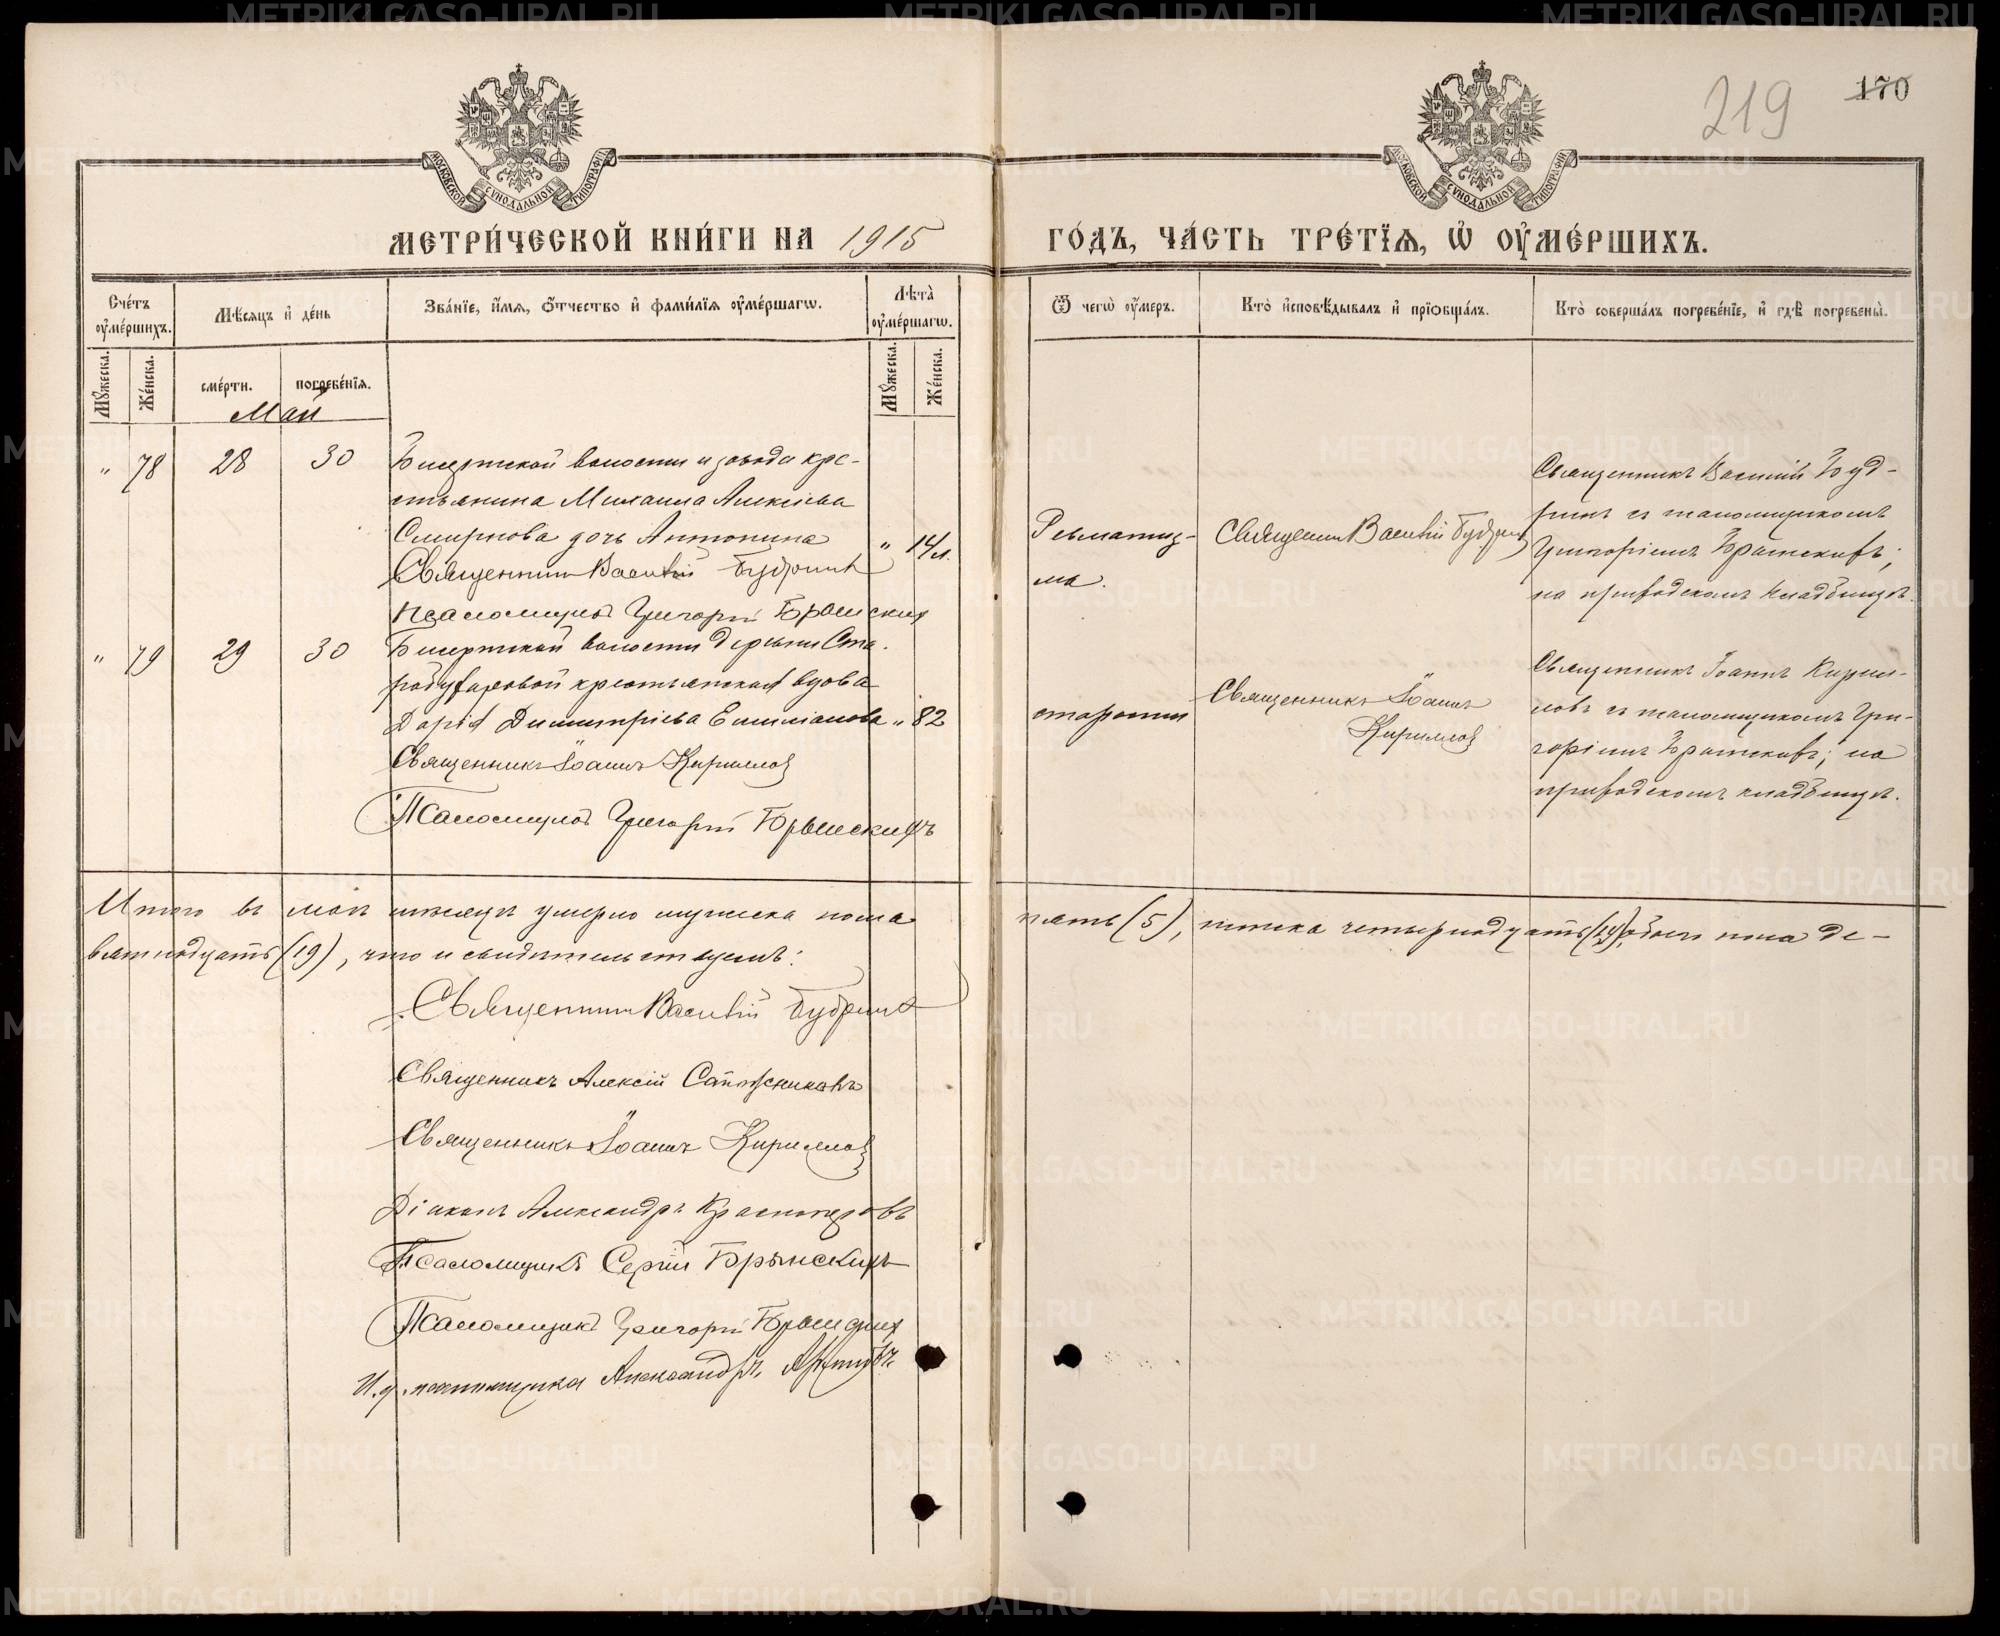 219
170
МОСКОВСКОЙ СѴНОДАЛЬНОЙ ТИПОГРАФІИ
МОСКОВСКОЙ СѴНОДАЛЬНОЙ ТИПОГРАФІИ
МЕТРИ́ЧЕСКОЙ КНИ́ГИ НА 1915
ГО́ДЪ, ЧА́СТЬ ТРЕ́ТЇѦ, Ѡ҆ ОУ҆МЕ́РШИХЪ.
Сче́тъ оу҆ме́ршихъ.
Мꙋ́жеска.
Же́нска.
Мѣ́сѧцъ и҆ де́нь
сме́рти.
погребе́нїѧ.
Зва́нїе, и҆́мѧ, ѻ҆́тчество и҆ фами́лїѧ оу҆ме́ршагѡ.
Лѣ̀та оу҆ме́ршагѡ.
Мꙋ́жеска.
Же́нска.
Ѿ чегѡ̀ оу҆́меръ.
Кто̀ и҆сповѣ́дывалъ и҆ прїѻбща́лъ.
Кто̀ соверша́лъ погребе́нїе, и҆ гдѣ̀ погребены̀.
Май
" 78 28 30
Бисертской волости и завода кре-
стьянина Михаила Алексіева
Смирнова дочь Антонина
" 14 л.
Священник Василій Будрин
Псаломщикъ Григорій Брынских
Ревматиз-
ма.
Священник Василій Будрин
Священникъ Василій Буд-
ринъ съ псаломщикомъ
Григоріемъ Брынскихъ;
на приходскомъ кладбищѣ.
" 79 29 30
Бисертской волости деревни Ста-
робухаровой крестьянская вдова
Дарія Димитріева Емиліанова
" 82
Священникъ Іоаннъ Кириллов
Псаломщикъ Григорій Брынскихъ
старости
Священникъ Іоаннъ
Кириллов
Священникъ Іоаннъ Кирил-
ловъ съ псаломщикомъ Гри-
горіемъ Брынскихъ; на
приходскомъ кладбищѣ.
Итого въ маѣ мѣсяцѣ умерло мужеска пола
пять (5), женска четырнадцать (14), обоего пола де-
вятнадцать (19), что и свидѣтельствуемъ:
Священник Василій Будрин
Священникъ Алексій Сапожниковъ
Священникъ Іоаннъ Кириллов
Діаконъ Александръ Красноперовъ
Псаломщикъ Сергій Брынскихъ
Псаломщикъ Григорій Брынских
И. д. псаломщика Александръ
METRIKI.GASO-URAL.RU